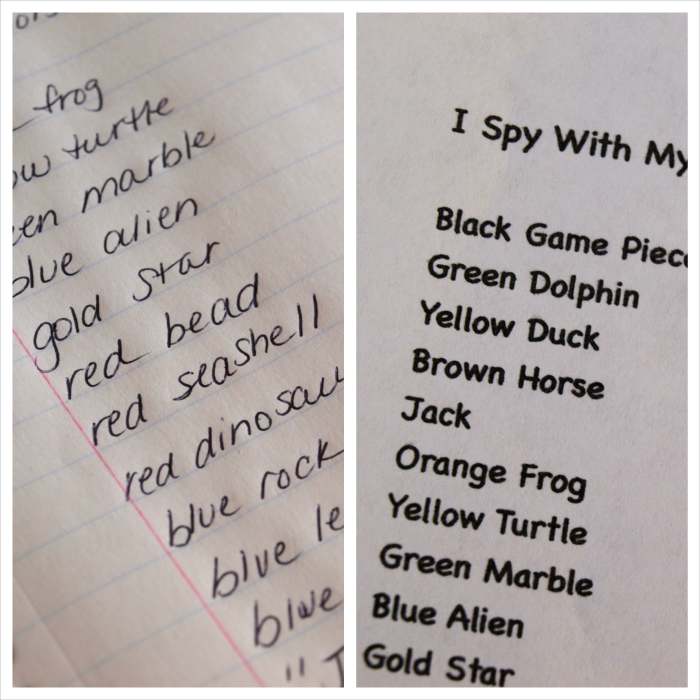 frog
turtle
marble
blue alien
gold star
red bead
red seashell
red dinosau
blue rock
blue le
blue
I Spy With My
Black Game Piec
Green Dolphin
Yellow Duck
Brown Horse
Jack
Orange Frog
Yellow Turtle
Green Marble
Blue Alien
Gold Star